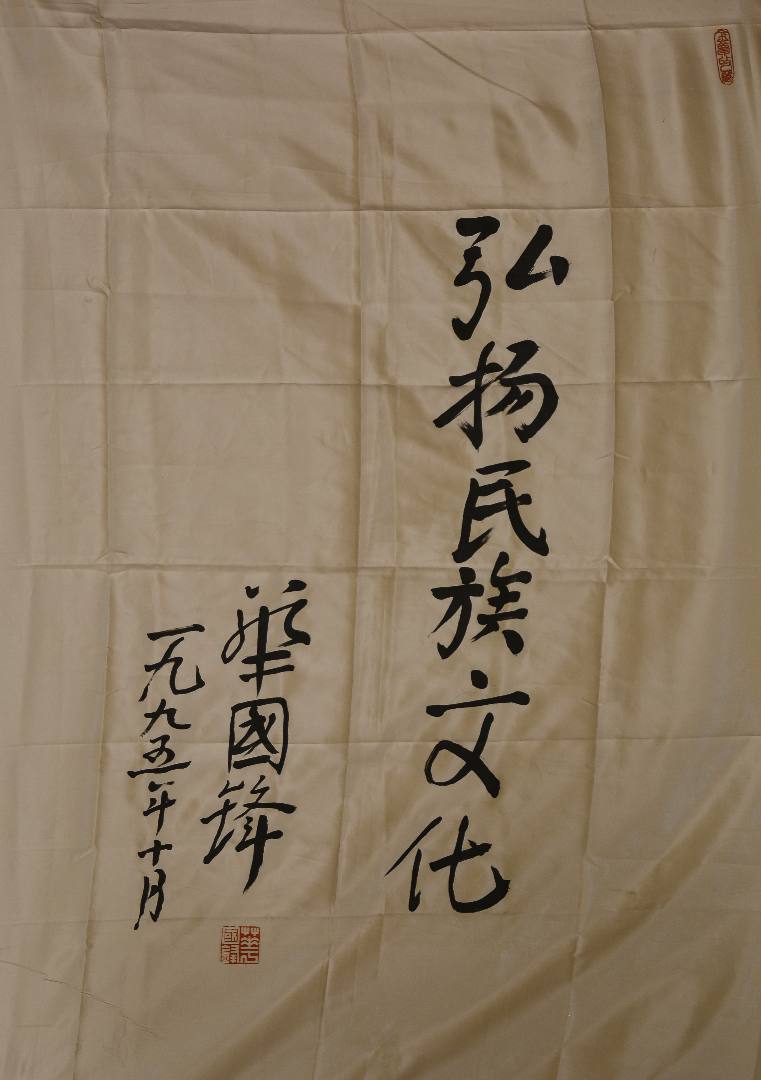 弘扬民族文化
華國鋒
一九九五年十月